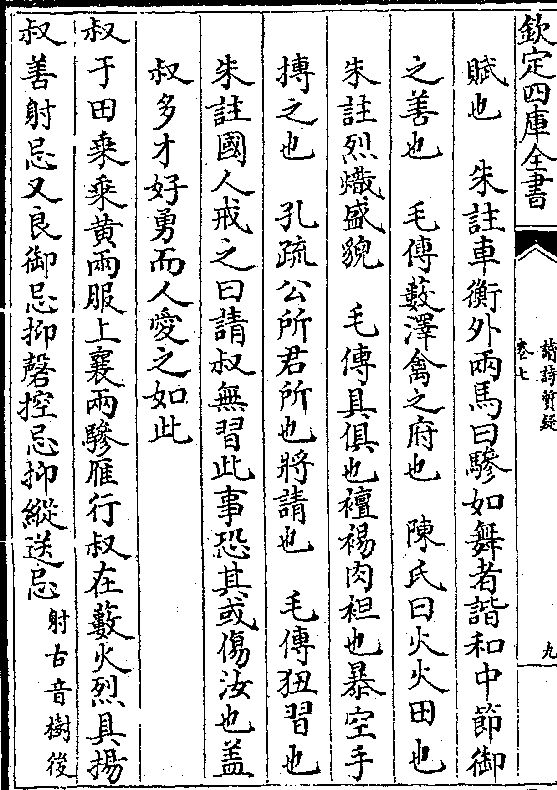 欽定四庫全書
讀詩質疑
卷七
九
賦也　朱註車衡外兩馬曰驂如舞者諧和中節御
之善也　毛傳藪澤禽之府也　陳氏曰火火田也
朱註烈熾盛貌　毛傳具俱也襢裼肉袒也暴空手
搏之也　孔疏公所君所也將請也　毛傳狃習也
朱註國人戒之曰請叔無習此事恐其或傷汝也盖
叔多才好勇而人愛之如此
叔于田乘乘黄兩服上襄兩驂雁行叔在藪火烈具揚
叔善射忌又良御忌抑磬控忌抑縱送忌射古音樹後